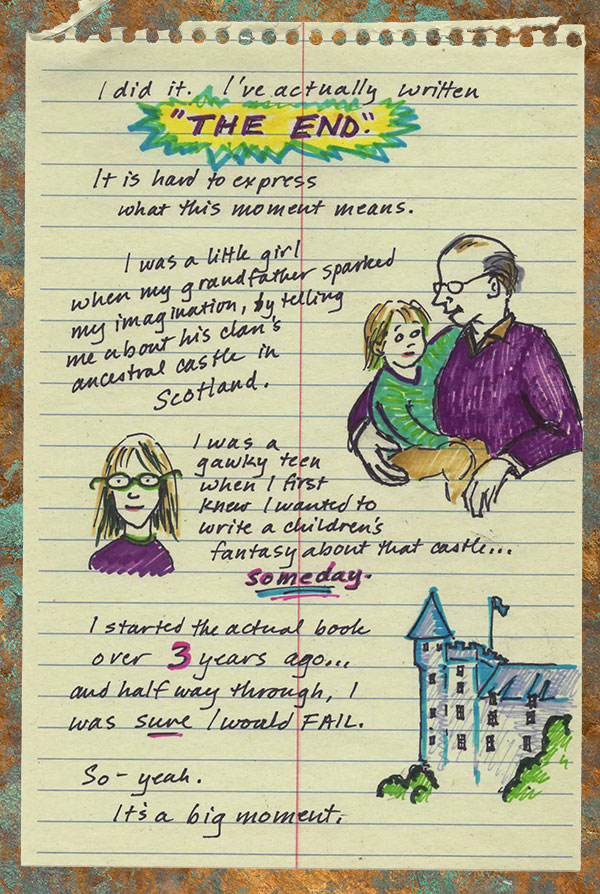 I did it. I've actually written
"THE END."
It is hard to express
what this moment means.
I was a little girl
when my grandfather sparked
my imagination, by telling
me about his clan's
ancestral castle in
Scotland.
I was a
gawky teen
when I first
knew I wanted to
write a children's
fantasy about that castle...
someday.
I started the actual book
over 3 years ago...
and half way through, I
was sure I would FAIL.
So - yeah.
It's a big moment.